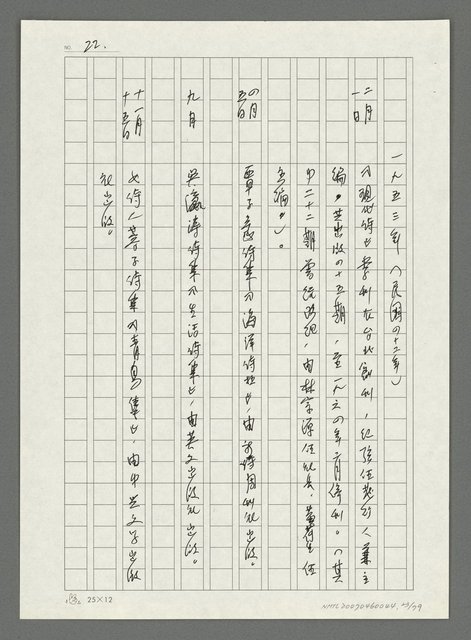 NO. 22.
一九五三年(民國四十二年)
二月一日
《現代詩》季刊在台北創刊,紀弦任發行人兼主
編,共出版四十五期,至一九六四年二月停刊。(其
中二十二期曾統改組,由林宗源任社長,黃荷生任
主編。)。
四月五日
覃子豪詩集《海洋詩抄》,由新詩週刊社出版。
九月
吳瀛濤詩集《生活詩集》,由英文出版社出版。
十一月十五日
女詩人蓉子詩集《青鳥集》,由中興文學出版
社出版。
25×12
NMTL20070460044, 23/79